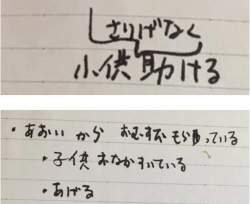 さりげなく
小供助ける
・あおい から おむすび もらっている
・子供 おなかすいている
・あげる